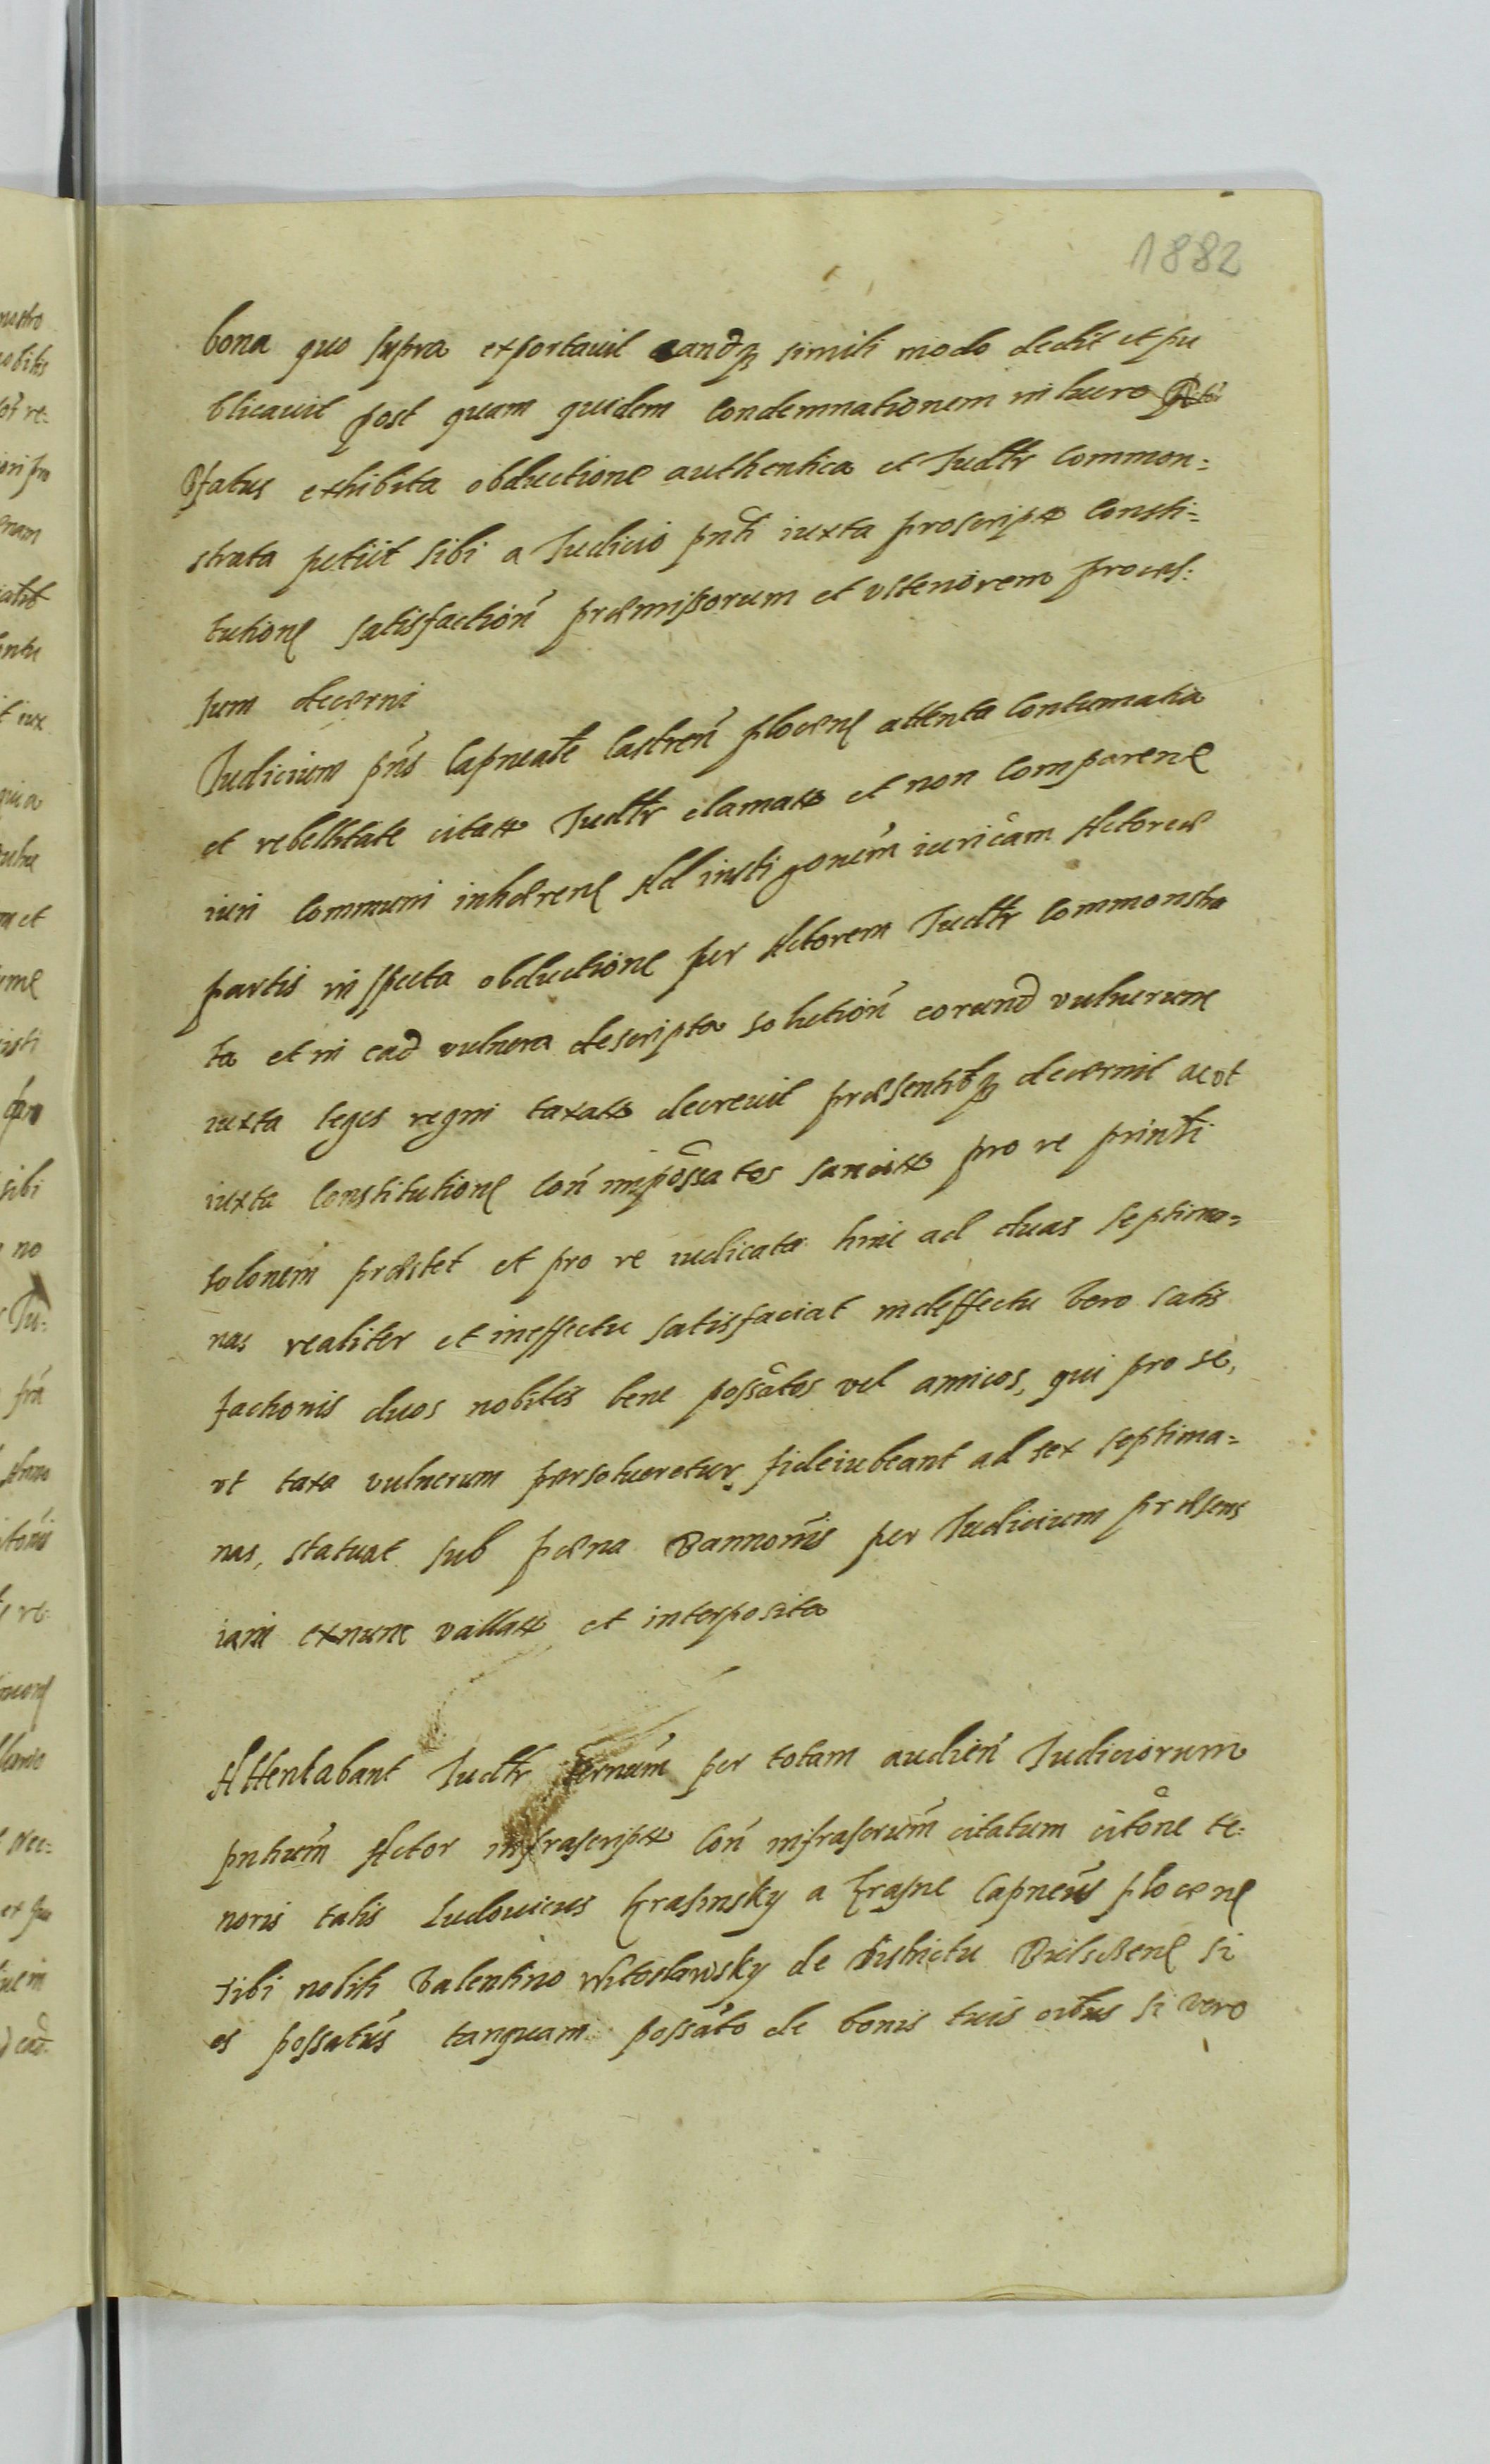 1882
bona quo supra exportavit eandq simili modo dedit et pu
blicavit post quam quidem Condemnationem in lucro
Pfatus exhibita obductione authentica et Iudtr Common=
strata petiit sibi a Iudicio pnti iuxta proscript Consti=
tutione satisfaction præmissorum et ulteriorem proces:
sum decerni
Iudicium pns Capneale Castren plocen attenta Contumatia
et rebellitate citati Iudtr clamati et non Comparen
iuri Communi inhæren Ad instigonem iuricam Actoreæ
partis inspecta obductione per Actorem Iudtr Commonstra
ta et in ead vulnera descripta solution eorund vulnerum
iuxta leges regni taxata decrevit præsentibq decernit ac ut
iuxta Constitutione Con impossatos sancita pro re printi
solonem præstet et pro re iudicata hinc ad duas septima=
nas realiter et in effectu satisfaciat in deffectu vero satis
factionis duos nobiles bene possatos vel amicos, qui pro se,
ut taxa vulnerum persolveretur fideiubeant ad sex septima=
nas, statuat sub pæna Bannonis per Iudicium præsens
iam exnunc vallata et interposita
Attentabant Iudtr ternum per totam audien Iudiciorum
pntium Actor infrascript Con infrascrum citatum citone te:
noris talis Ludovicus Krasinsky a Krasne Capneus plocen
tibi nobili Valentino Witoslawsky de Districtu si
es possatus tanquam possato de bonis tuis oibus si vero